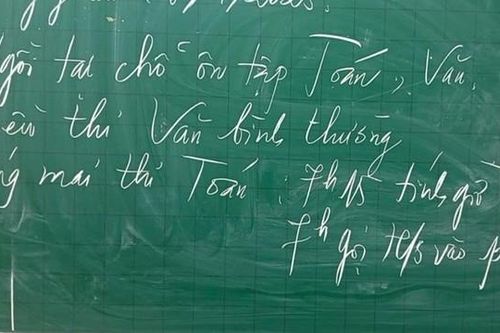 gồi tại chỗ ôn tập Toán, Văn.
thi Văn bình thường
mai thi Toán : 7h15 tính giờ
7h gọi H/s vào